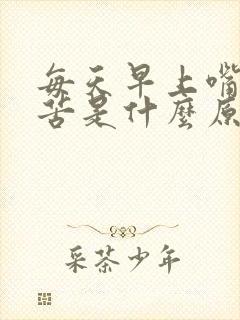 每天早上嘴
苦是什麼原
采茶少年